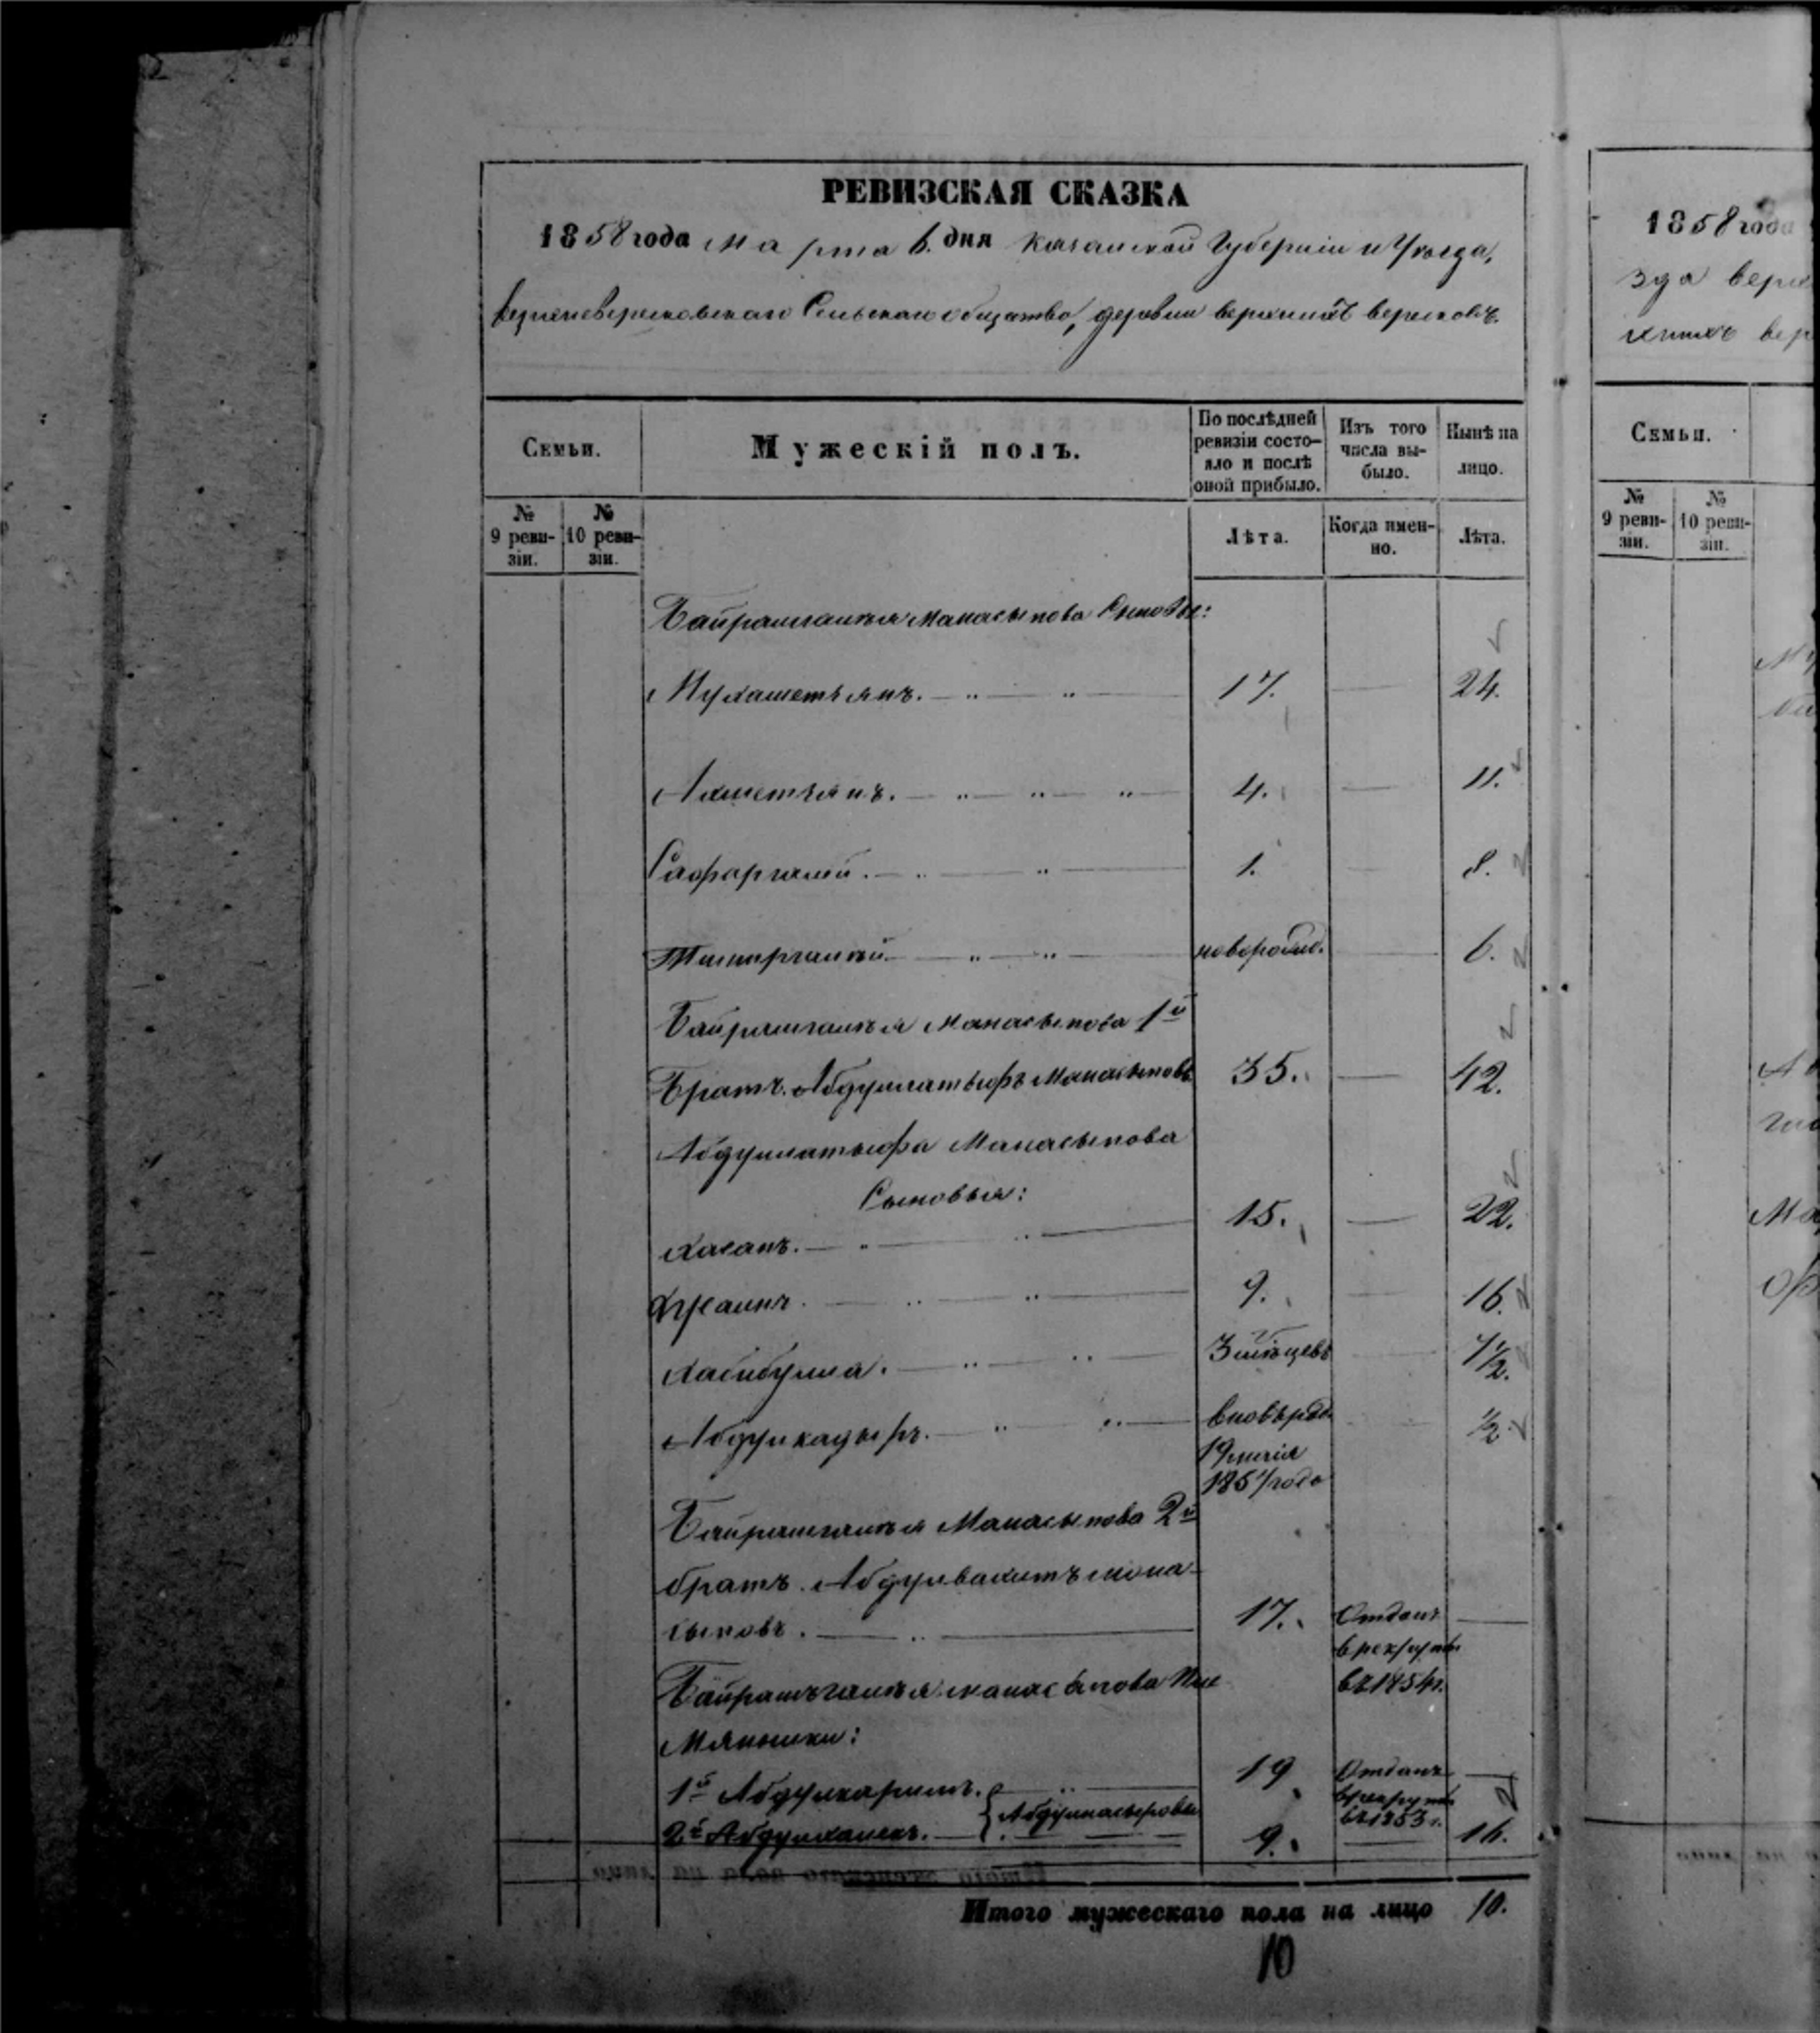 РЕВИЗСКАЯ СКАЗКА
1858 года марта 6. дня Казанской Губерніи и Уѣзда,
Верхневересковскаго Сельскаго общества, деревни верхнихъ вересковъ.
Семьи.
Мужескій полъ.
По послѣдней ревизіи состояло и послѣ оной прибыло.
Изъ того числа выбыло.
Нынѣ на лицо.
№ 9 ревизіи.
№ 10 ревизіи.
Лѣта.
Когда именно.
Лѣта.
Байрамгалѣя Манасыпова Сыновья:
Мухаметзянъ. 17. — 24.
Ахметзянъ. 4. — 11.
Сафаргалей. 1. — 8.
новорожд. — 6.
Байрамгалѣя Манасыпова 1й
Братъ. Абдуллатыфъ Манасыповъ 35. — 42.
Абдуллатыфа Манасыпова
Сыновья:
Хасанъ. 15. — 22.
Хусаинъ. 9. — 16.
Хабибулла. — 7½.
Абдулкадыръ. вновьрожд. — ½.
19 
1857 года
Байрамгалѣя Манасыпова 2й
братъ. Абдулвахитъ мана-
сыповъ. 17. Отданъ —
в рекруты
въ 1854 г.
Байрамъгалѣя манасыпова Пле
мянники:
1й Абдулкаримъ. 19 Отданъ —
Абдулнасыровы
в рекруты
въ 1853 г.
2й 9. — 16.
Итого мужескаго пола на лицо 10.
10
1858 года
зда верх
хнихъ вер
Семьи.
№ 9 ревизіи.
№ 10 ревизіи.